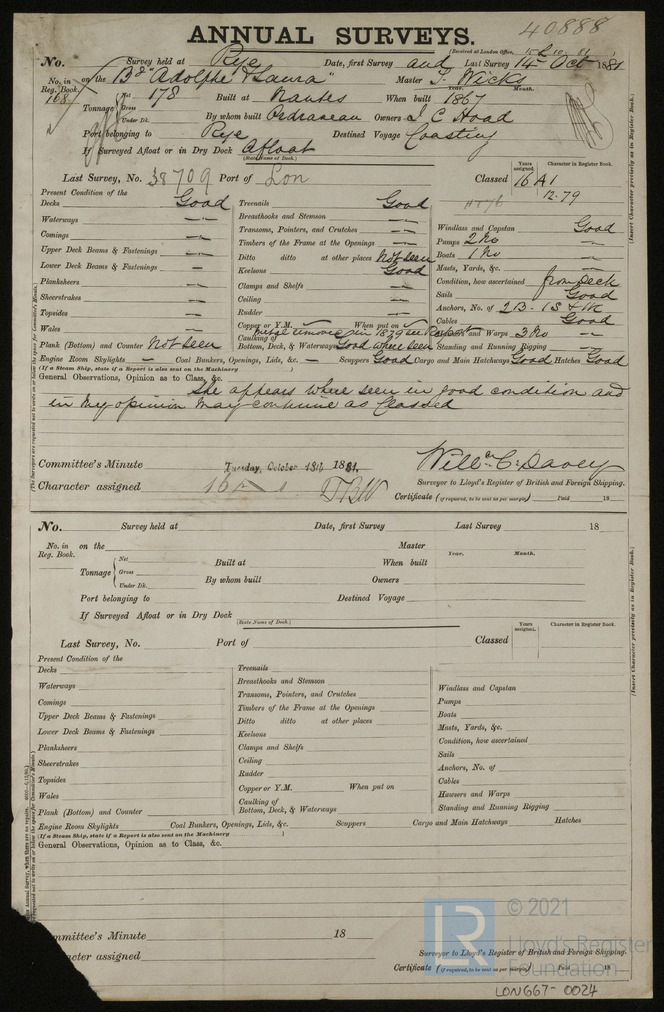 40888
ANNUAL SURVEYS.
(Received at London Office,
No. Survey held at Rye Date, first Survey and Last Survey 14th Oct 1881
No. in Reg. Book. 168 on the Bg "Adolphe & Laura" Master T. Wicks
Year. Month.
Tonnage Net 178 Built at Nantes When built 1867
Gross
Under Dk. By whom built Owners J C Hoad
Port belonging to Rye Destined Voyage Coasting
If Surveyed Afloat or in Dry Dock Afloat
(State Name of Dock.)
Last Survey, No. 38709 Port of Lon Classed
Years assigned. 16 Character in Register Book. A1
12.79
Present Condition of the
Decks Good
Waterways —
Comings —
Upper Deck Beams & Fastenings —
Lower Deck Beams & Fastenings —
Planksheers —
Sheerstrakes —
Topsides —
Wales —
Plank (Bottom) and Counter Not Seen
Treenails Good
Breasthooks and Stemson —
Transoms, Pointers, and Crutches —
Timbers of the Frame at the Openings —
Ditto ditto at other places Not Seen
Keelsons Good
Clamps and Shelfs —
Ceiling —
Rudder —
Copper or Y.M. When put on
Caulking of
Bottom, Deck, & Waterways Good where Seen
Windlass and Capstan Good
Pumps 2 No —
Boats 1 No —
Masts, Yards, &c. —
Condition, how ascertained from Deck
Sails Good
Anchors, No. of 2 B. 1 S & 1K
Cables Good
Hawsers and Warps 3 No —
Standing and Running Rigging —
Engine Room Skylights — Coal Bunkers, Openings, Lids, &c. — Scuppers Good Cargo and Main Hatchways Good Hatches Good
(If a Steam Ship, state if a Report is also sent on the Machinery )
General Observations, Opinion as to Class, &c.
She appears where seen in good condition and
in my opinion may continue as Classed
Committee's Minute Tuesday, October 18th 1881,
Character assigned 16 A 1
Willm C. Davey
Surveyor to Lloyd's Register of British and Foreign Shipping.
Certificate (if required, to be sent as per margin) Paid 18
(Insert Character precisely as in Register Book.)
(The Surveyors are requested not to write on or below the space for Committee's Minute.)
No. Survey held at Date, first Survey Last Survey 18
No. in Reg. Book. on the Master
Year. Month.
Tonnage Net Built at When built
Gross
Under Dk. By whom built Owners
Port belonging to Destined Voyage
If Surveyed Afloat or in Dry Dock
(State Name of Dock.)
Last Survey, No. Port of Classed
Years assigned. Character in Register Book.
Present Condition of the
Decks
Waterways
Comings
Upper Deck Beams & Fastenings
Lower Deck Beams & Fastenings
Planksheers
Sheerstrakes
Topsides
Wales
Plank (Bottom) and Counter
Treenails
Breasthooks and Stemson
Transoms, Pointers, and Crutches
Timbers of the Frame at the Openings
Ditto ditto at other places
Keelsons
Clamps and Shelfs
Ceiling
Rudder
Copper or Y.M. When put on
Caulking of
Bottom, Deck, & Waterways
Windlass and Capstan
Pumps
Boats
Masts, Yards, &c.
Condition, how ascertained
Sails
Anchors, No. of
Cables
Hawsers and Warps
Standing and Running Rigging
Engine Room Skylights Coal Bunkers, Openings, Lids, &c. Scuppers Cargo and Main Hatchways Hatches
(If a Steam Ship, state if a Report is also sent on the Machinery )
General Observations, Opinion as to Class, &c.
mmittee's Minute 18
racter assigned
Surveyor to Lloyd's Register of British and Foreign Shipping.
Certificate (if required, to be sent as per margin) Paid 18
(Insert Character precisely as in Register Book.)
LR
© 2021
Lloyd's Register
Foundation
LON667-0024